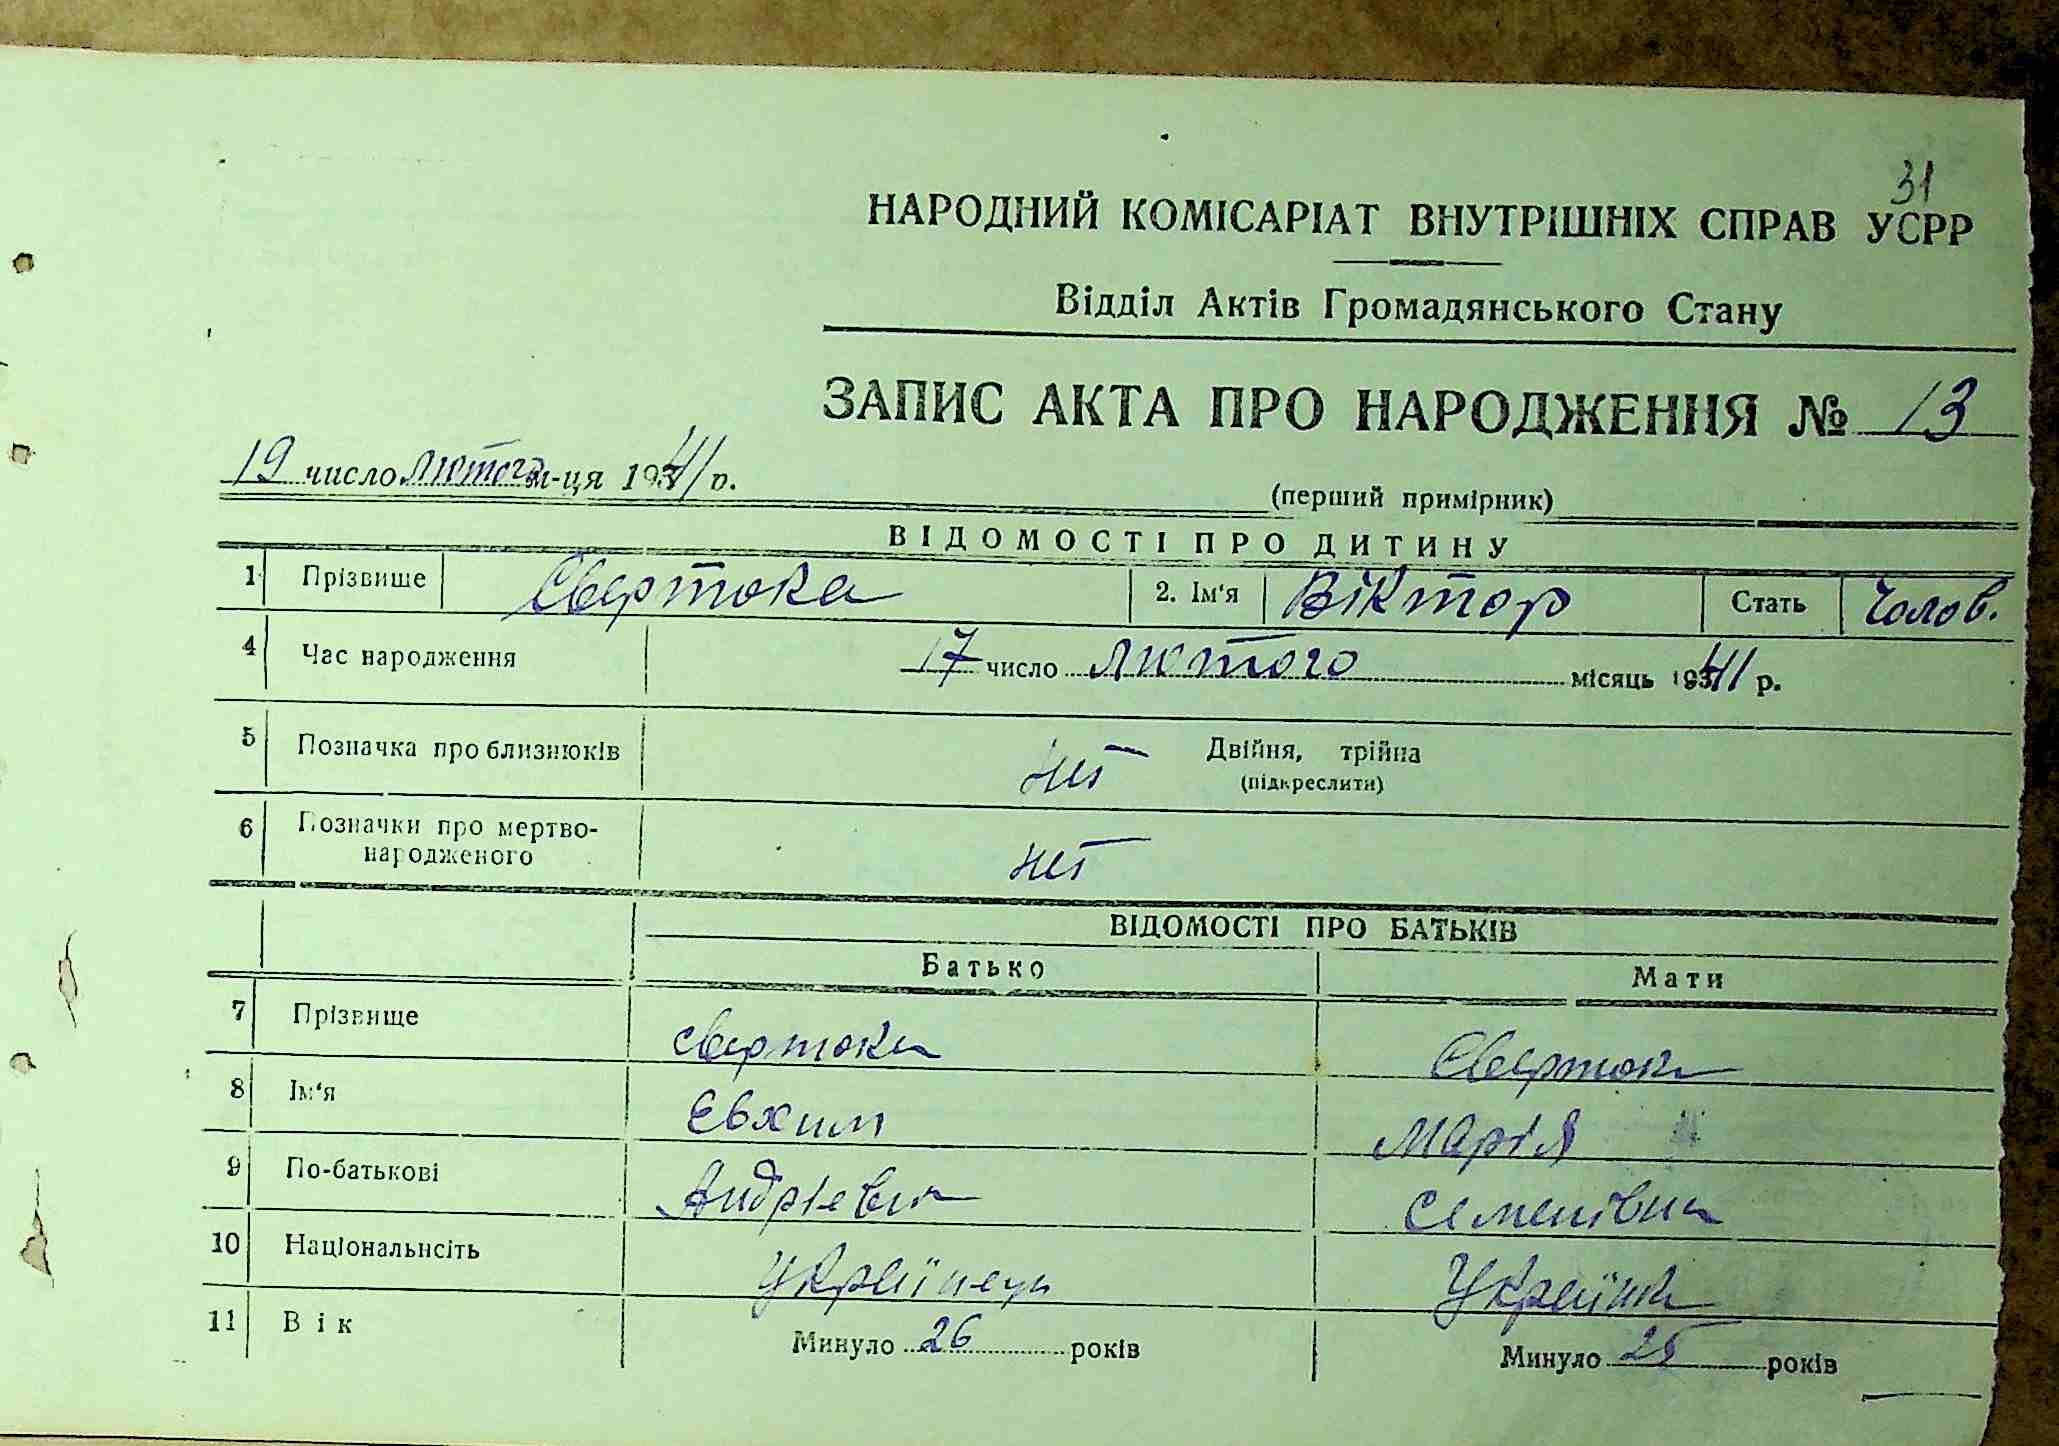 31
НАРОДНИЙ КОМІСАРІАТ ВНУТРІШНІХ СПРАВ УСРР
Відділ Актів Громадянського Стану
ЗАПИС АКТА ПРО НАРОДЖЕННЯ № 13
19 число лютого м-ця 1941 р.
(перший примірник)
ВІДОМОСТІ ПРО ДИТИНУ
1 Прізвище Свертока 2. Ім'я Віктор Стать Чолов.
4 Час народження 17 число лютого місяць 1941 р.
5 Позначка про близнюків нет Двійня, трійна
(підкреслити)
6 Позначки про мертво-
народженого нет
ВІДОМОСТІ ПРО БАТЬКІВ
Батько Мати
7 Прізвище Свертока Свертока
8 Ім'я Євхим Марія
9 По-батькові Андрієвич Семенівна
10 Національнсіть Українець Українка
11 Вік Минуло 26 років Минуло 25 років